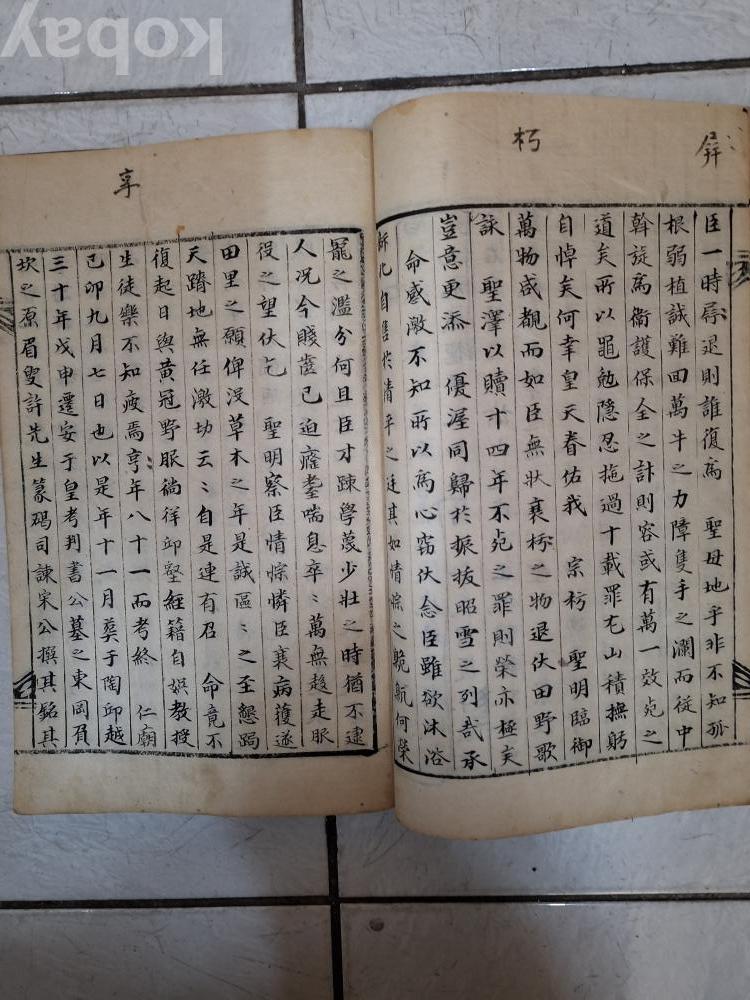 kobay
屛
朽
臣一時尋退則誰復爲 聖母地乎非不知孤
根弱植誠難回萬牛之力障隻手之瀾而從中
斡旋爲衛護保全之計則容或有萬一效死之
道矣所以黽勉隱忍拖過十載罪屯山積撫躬
自悼矣何幸皇天眷佑我 宗祊 聖明臨御
萬物咸覩而如臣無狀衰朽之物退伏田野歌
詠 聖澤以贖十四年不死之罪則榮亦極矣
豈意更添 優渥同歸於振拔昭雪之列哉承
命感激不知所以爲心窃伏念臣雖欲沐浴
自售於清平之廷其如情悰之臲卼何榮
享
寵之濫分何且臣才踈學蔑少壯之時猶不逮
人况今賤齒已迫癃耋喘息卒〻萬無趍走服
役之望伏乞 聖明察臣情悰憐臣衰病獲遂
田里之願俾沒草木之年是誠區〻之至懇跼
天蹐地無任激切云〻自是連有召 命竟不
復起日與黃冠野服徜徉邱壑經籍自娛敎授
生徒樂不知疲焉亨年八十一而考終 仁廟
己卯九月七日也以是年十一月葬于陶邱越
三十年戊申遷安于皇考判書公墓之東岡負
坎之原眉叟許先生篆碣司諫宋公撰其銘其